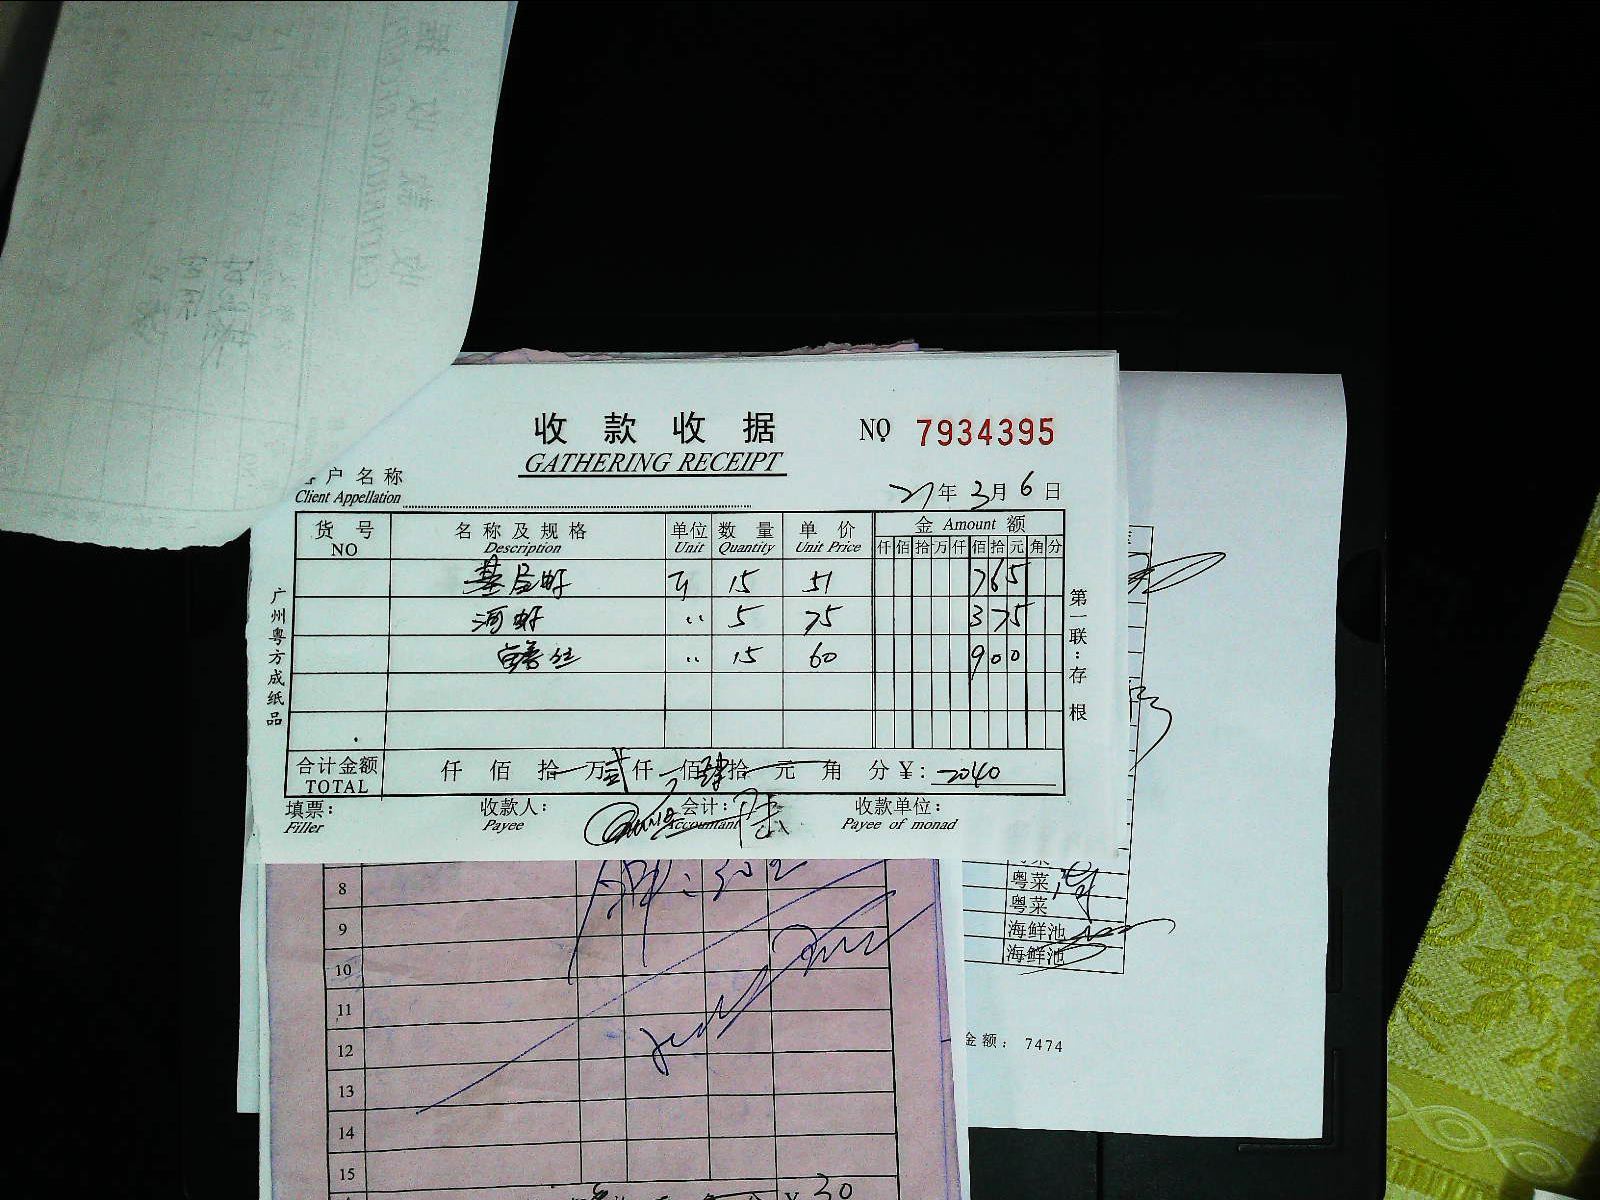 收款收据
NO 7934395
GATHERING RECEIPT
户名称
Client Appellation
21年3月6日
货号 名称及规格 单位 数量 单价 金 Amount 额
NO Description Unit Quantity Unit Price 仟佰拾万仟佰拾元角分
基尾虾 斤 15 51 765
河虾 〃 5 75 375
鳝丝 〃 15 60 900
广州粤方成纸品
第一联：存根
合计金额 仟 佰 拾 万 贰仟 佰 肆拾 元 角 分 ¥: 2040
TOTAL
填票: 收款人: 会计: 收款单位:
Filler Payee Accountant Payee of monad
8
9
10
11
12
13
14
15
¥ 30
粤菜
粤菜
海鲜池
海鲜池
金额: 7474